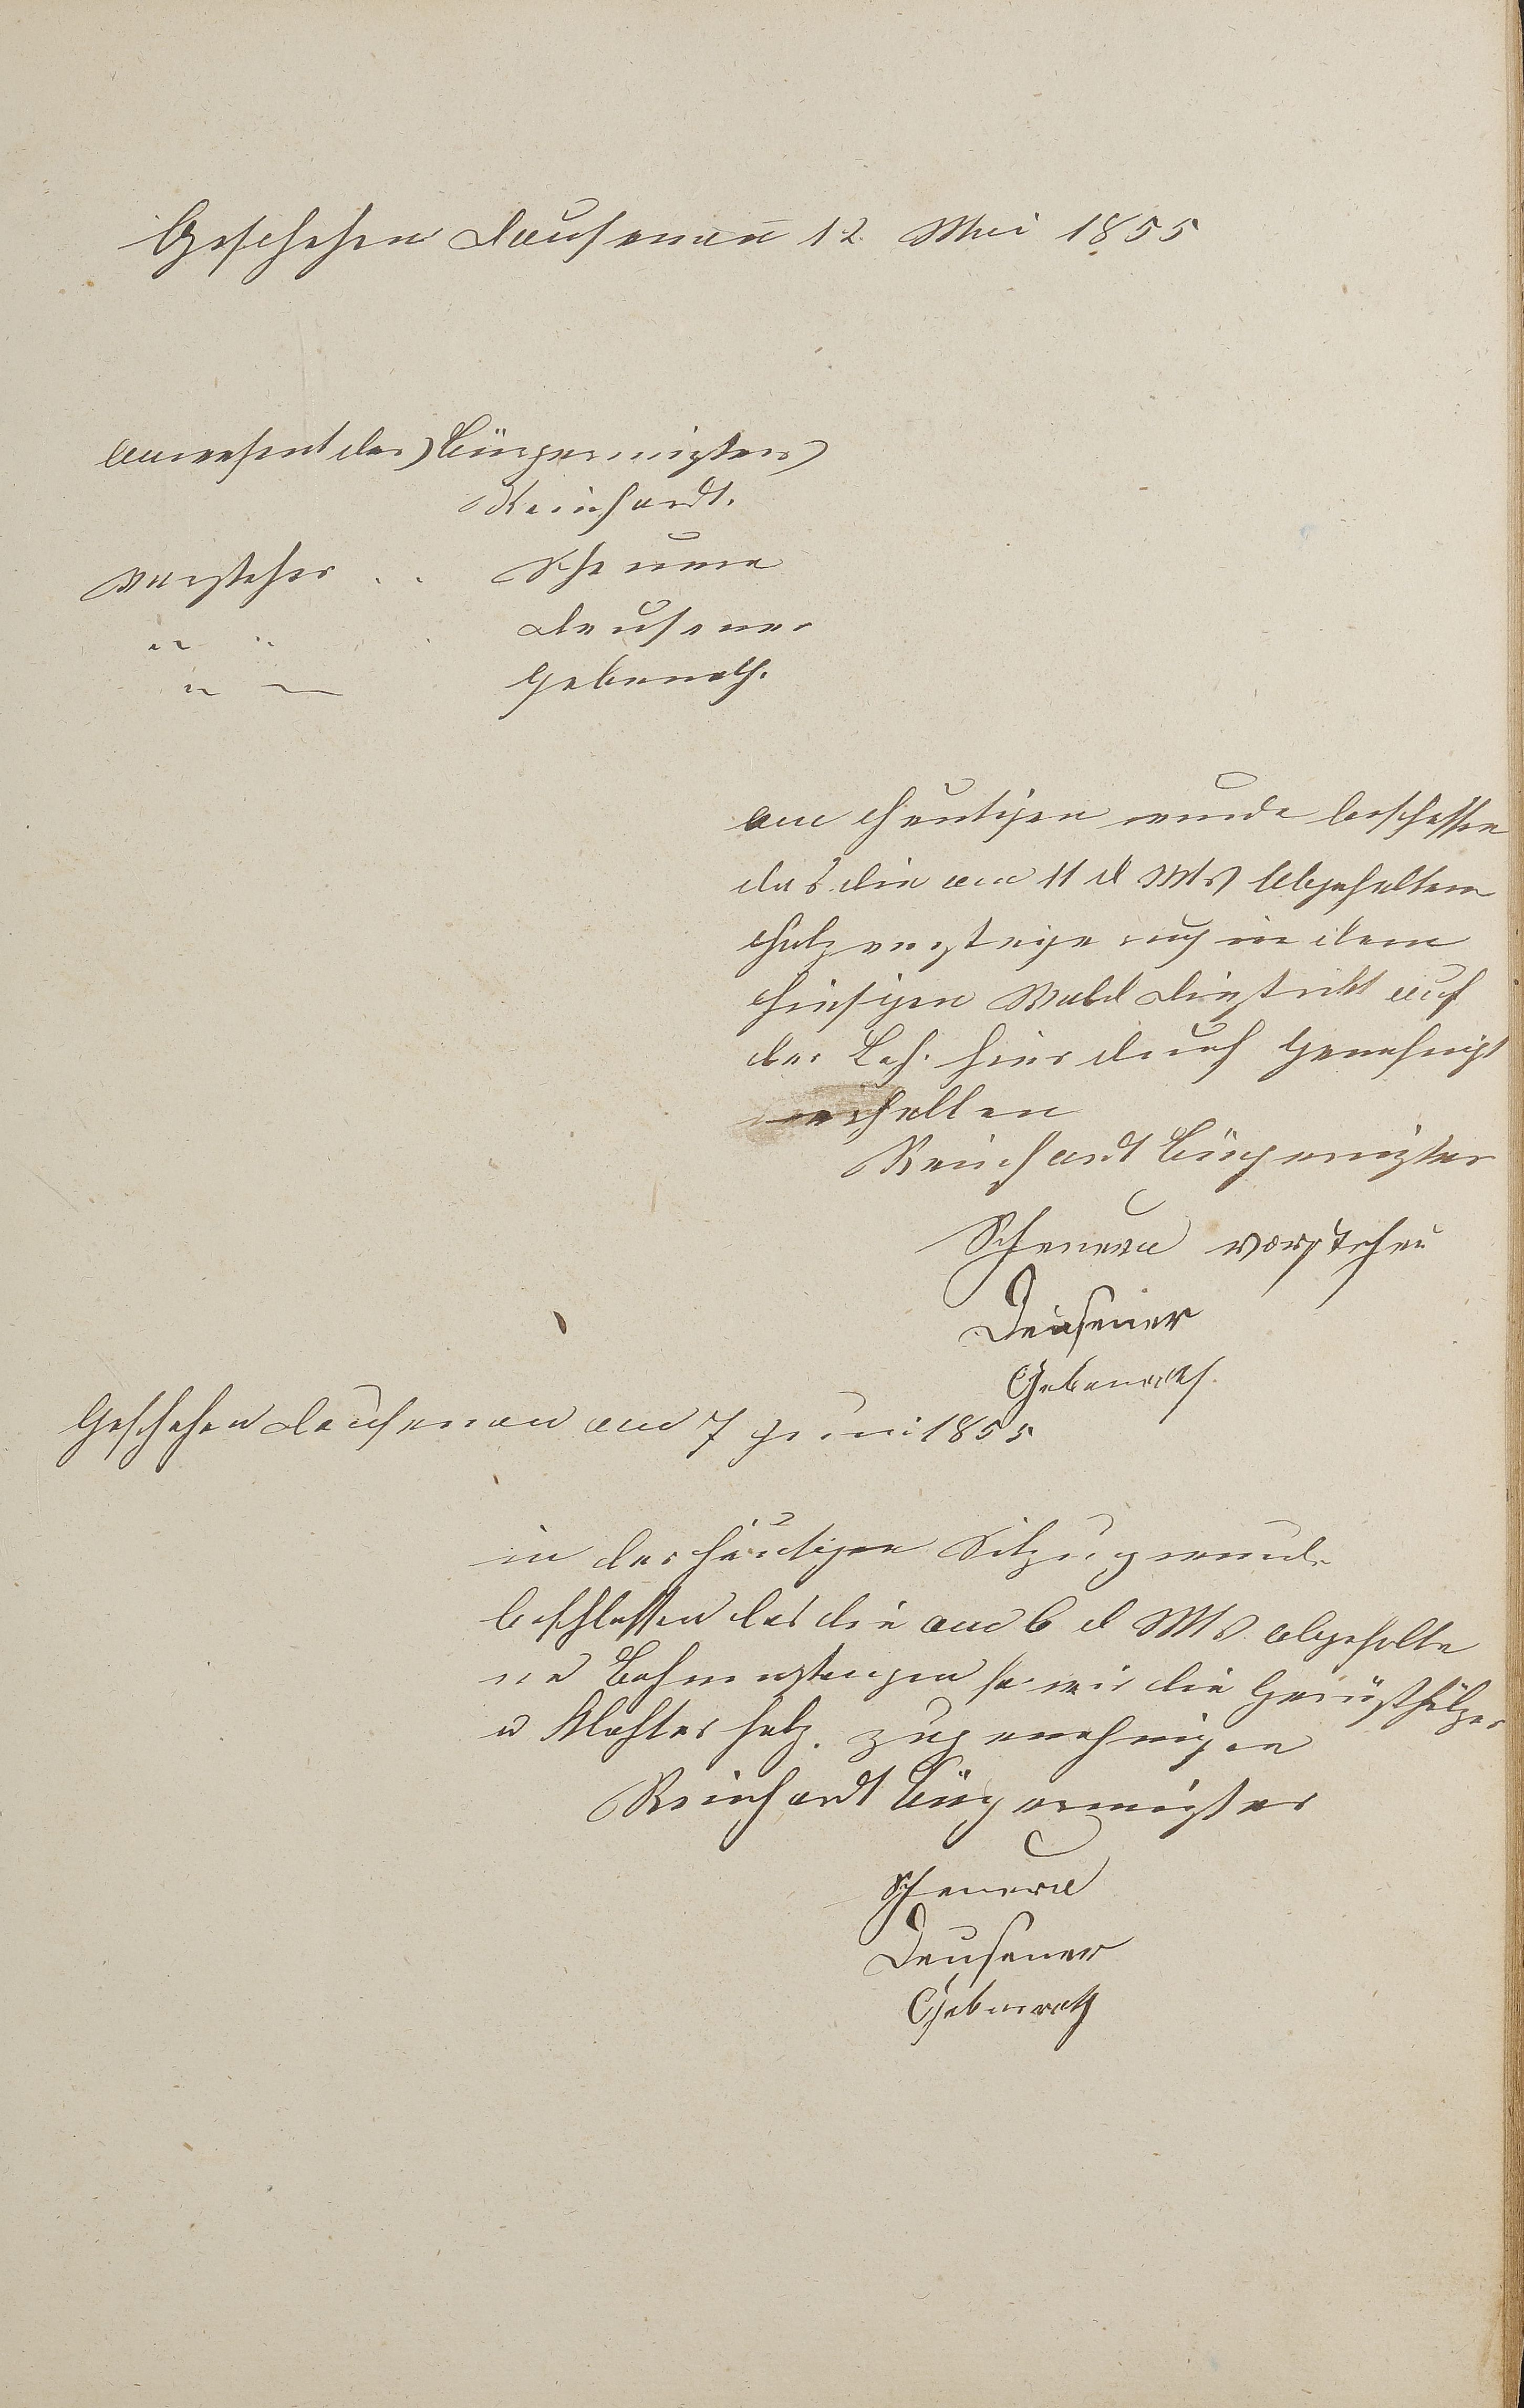 Geschehen Dausenau 12. Mai 1855
Anwesent der Bürgermeister
Reinhardt.
Vorsteher . . Scheuern
" " Deusener
" — Gebenroth.
am heutigen wurde beschossen
das die am 11 d Mts Abgehalten
Holzversteigerung in dem
hiesigen Wald Distrikt auf
der Leh. hier durch Genehmigt
erhalten
Reinhardt Bürgermeister
Scheuern Vorsteher
Deusener
Gebenroth.
Geschehen Dausenau am 7 Juni 1855
in der heutigen Sitzung wurde
beschlossen das die am 6 d Mts. abgehalte
ne so wie die Gerüsthölzer
u Klafter holz. zugenehmigen
Reinhardt Bürgermeister
Scheuern
Deusener
Gebenroth